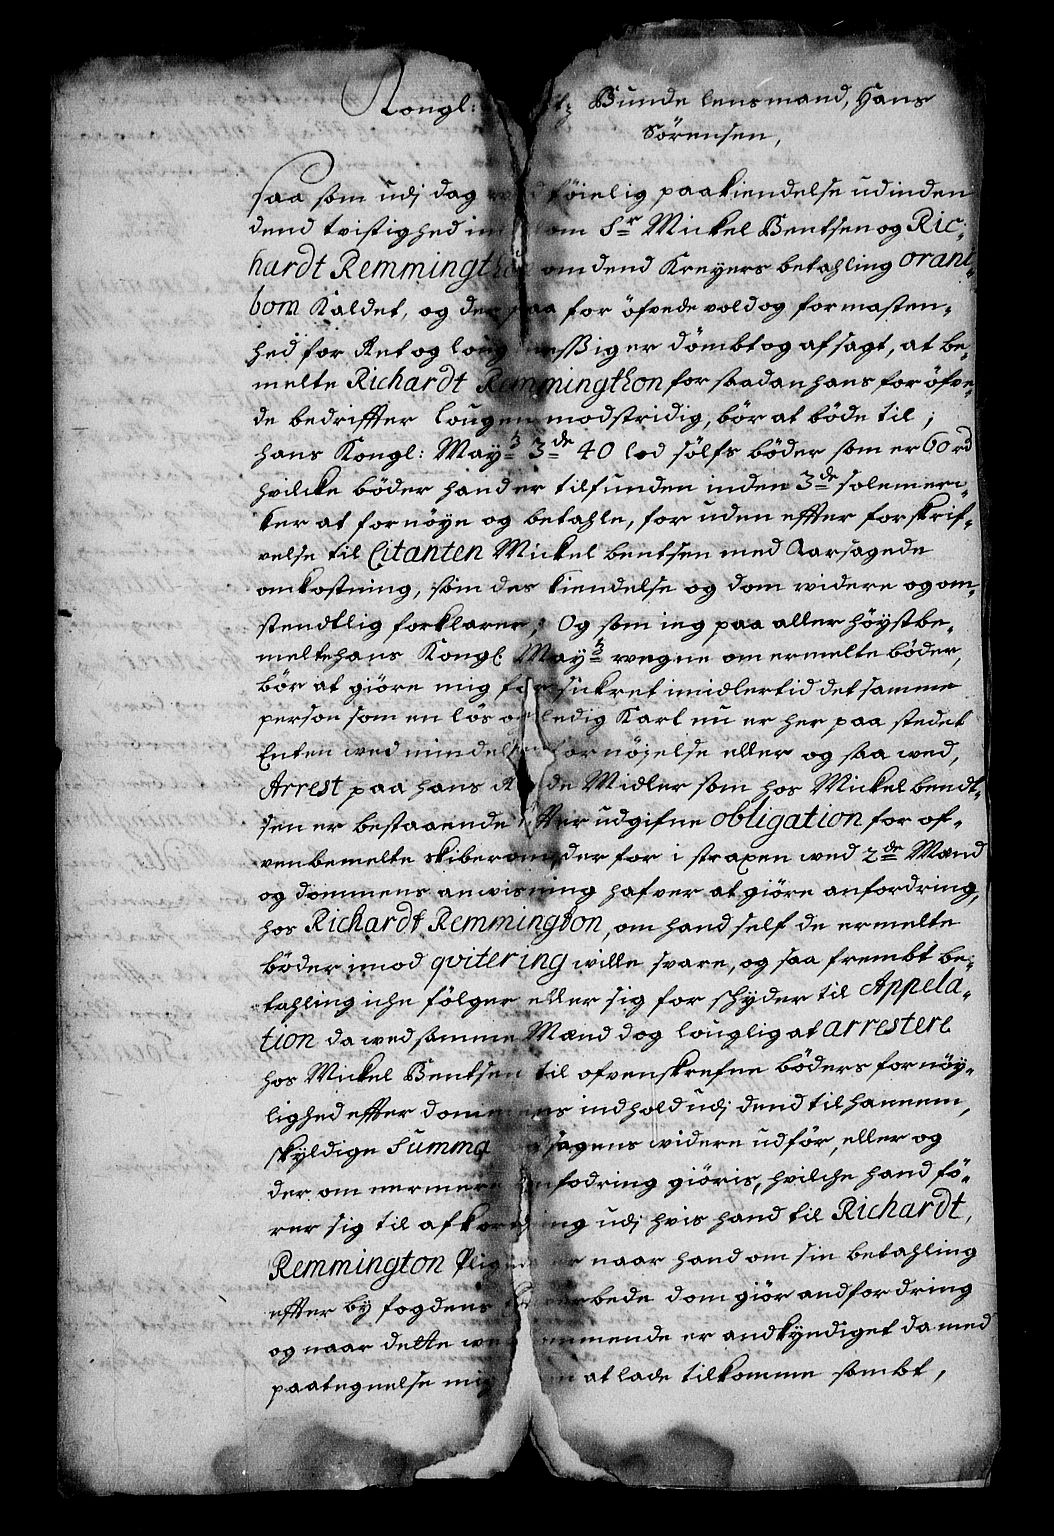 Kongl: Bunde lensmand, Hans
Sörensen,
Saa som udj dag ved föielig paakiendelse udinden
dend tvistighed imellom Sr Mickel Bentsen og Ric-
hardt Remmingthon om dend Kreyers betahling orani-
bom Kaldet, og der paa for öfvede vold og formasten-
hed for Ret og loug messig er dömbt og afsagt, at be-
melte Richardt Remmingthon for saadan hans for öfve-
de bedriffter lougen modstridig, bör at böde til;
hans Kongl: Mayts 3de 40 lod sölfs böder som er 60 rd
hvilcke böder hand er tilfunden inden 3de solemerc-
ker at fornöye og betahle, for uden effter forskrif-
velse til Citanten Mickel bentsen med Aarsagede
omkostning, som des kiendelse og dom widere og om-
stendtlig forklarer; Og som ieg paa aller höystbe-
melte hans Kongl Mayts wegne om ermelte böder,
bör at giöre mig forsickret imidlertid det samme
person som en lös og ledig Karl nu er her paa stedet
Enten wed mindelig fornöielse eller og saa wed,
Arrest paa hans Midler som hos Mickel bendt-
sen er bestaaende effter udgifne obligation for of-
venbemelte skiberom, der for i strax en wed 2de Mænd
og dommens anwisning hafver at giöre anfordring,
hos Richardt Remmington, om hand self de ermelte
böder imod qvitering wille svare, og saa frembt be-
tahling iche fölger eller sig for schyder til Appela-
tion da wed samme Mænd dog louglig at arrestere
hos Mickel Bentsen til ofvenskrefne böders fornöy-
lighed effter dommens indhold udj dend til hannem,
skyldige Summa og sagens widere udför, eller og
der om nermere anfodring giöris, hvilche hand fö-
rer sig til afkortning udj hvis hand til Richardt,
Remmington pligtig er naar hand om sin betahling
effter by fogdens dom giör andfordring
og naar dette wedkommende er andkyndiget da med
paategnelse mig at lade tilkomme sambt,